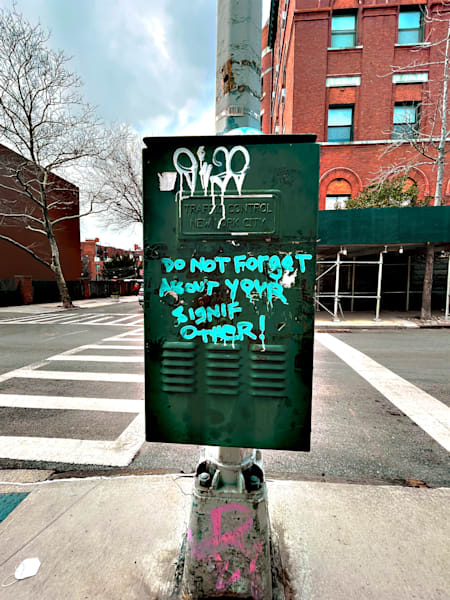 TRAFFIC CONTROL
NEW YORK CITY
DO NOT FORGET
ABOUT YOUR
SIGNIF
OTHER!